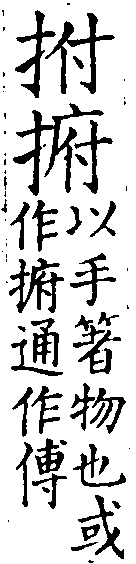 拊捬
以手箸物也或
作捬通作傅